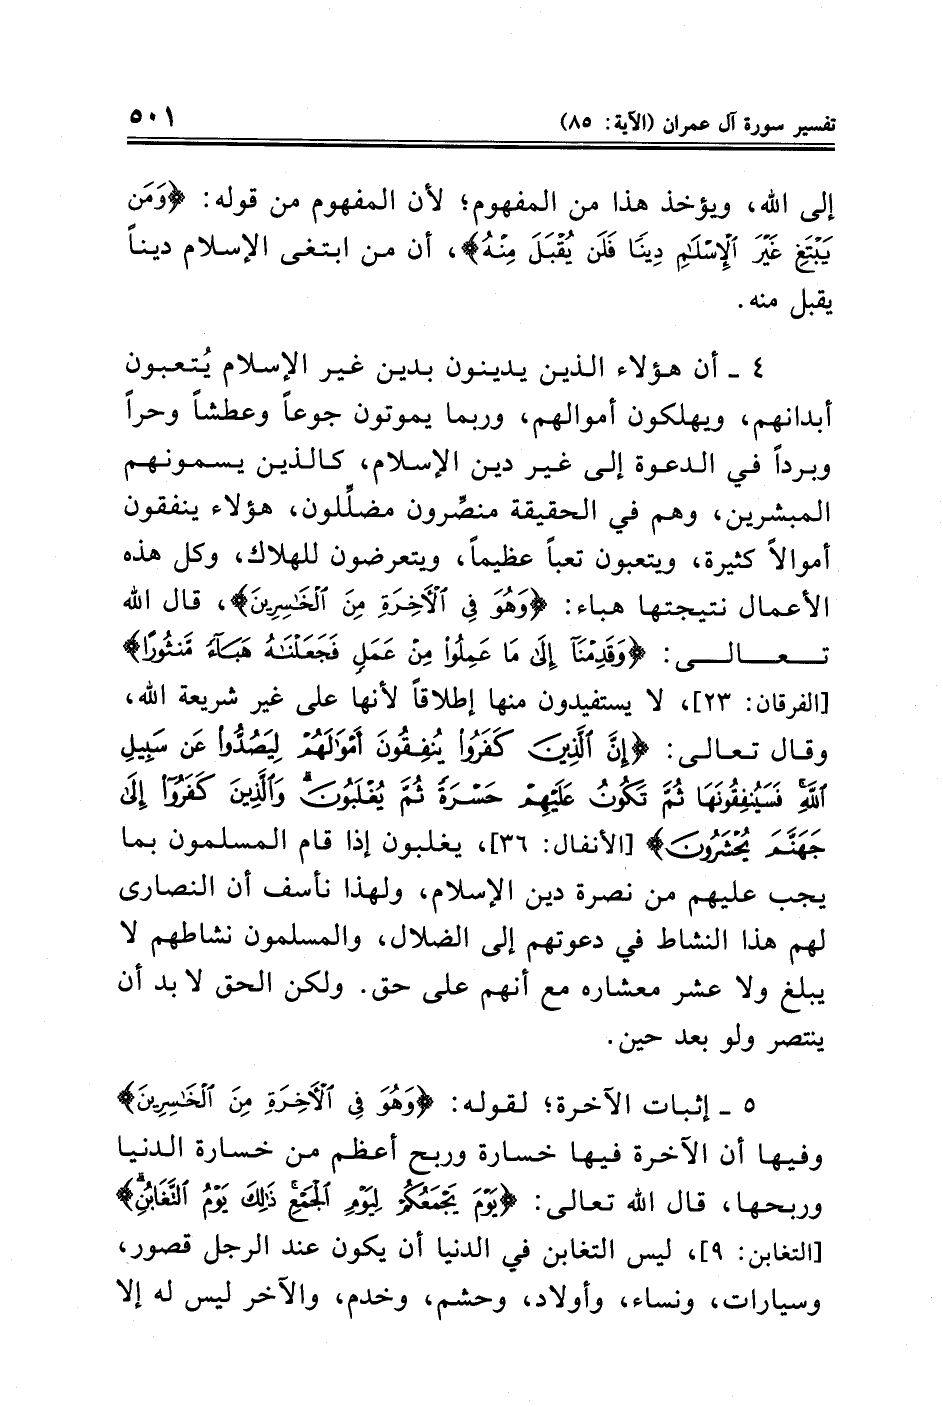 تفسير سورة آل عمران (الآية: ٨٥) ٥٠١
إلى الله، ويؤخذ هذا من المفهوم؛ لأن المفهوم من قوله: ﴿وَمَن
يَبْتَغِ غَيْرَ ٱلْإِسْلَٰمِ دِينًا فَلَن يُقْبَلَ مِنْهُ﴾، أن من ابتغى الإسلام ديناً
يقبل منه.
٤ ـ أن هؤلاء الذين يدينون بدين غير الإسلام يُتعبون
أبدانهم، ويهلكون أموالهم، وربما يموتون جوعاً وعطشاً وحراً
وبرداً في الدعوة إلى غير دين الإسلام، كالذين يسمونهم
المبشرين، وهم في الحقيقة منصِّرون مضلِّلون، هؤلاء ينفقون
أموالاً كثيرة، ويتعبون تعباً عظيماً، ويتعرضون للهلاك، وكل هذه
الأعمال نتيجتها هباء: ﴿وَهُوَ فِى ٱلْأَخِرَةِ مِنَ ٱلْخَٰسِرِينَ﴾، قال الله
تـعـالـى: ﴿وَقَدِمْنَآ إِلَىٰ مَا عَمِلُوا۟ مِنْ عَمَلٍ فَجَعَلْنَٰهُ هَبَآءً مَّنثُورًا﴾
[الفرقان: ٢٣]، لا يستفيدون منها إطلاقاً لأنها على غير شريعة الله،
وقال تعالى: ﴿إِنَّ ٱلَّذِينَ كَفَرُوا۟ يُنفِقُونَ أَمْوَٰلَهُمْ لِيَصُدُّوا۟ عَن سَبِيلِ
ٱللَّهِ ۚ فَسَيُنفِقُونَهَا ثُمَّ تَكُونُ عَلَيْهِمْ حَسْرَةً ثُمَّ يُغْلَبُونَ ۗ وَٱلَّذِينَ كَفَرُوٓا۟ إِلَىٰ
جَهَنَّمَ يُحْشَرُونَ﴾ [الأنفال: ٣٦]، يغلبون إذا قام المسلمون بما
يجب عليهم من نصرة دين الإسلام، ولهذا نأسف أن النصارى
لهم هذا النشاط في دعوتهم إلى الضلال، والمسلمون نشاطهم لا
يبلغ ولا عشر معشاره مع أنهم على حق. ولكن الحق لا بد أن
ينتصر ولو بعد حين.
٥ ـ إثبات الآخرة؛ لقوله: ﴿وَهُوَ فِى ٱلْأَخِرَةِ مِنَ ٱلْخَٰسِرِينَ﴾
وفيها أن الآخرة فيها خسارة وربح أعظم من خسارة الدنيا
وربحها، قال الله تعالى: ﴿يَوْمَ يَجْمَعُكُمْ لِيَوْمِ ٱلْجَمْعِ ۖ ذَٰلِكَ يَوْمُ ٱلتَّغَابُنِ ۗ﴾
[التغابن: ٩]، ليس التغابن في الدنيا أن يكون عند الرجل قصور،
وسيارات، ونساء، وأولاد، وحشم، وخدم، والآخر ليس له إلا